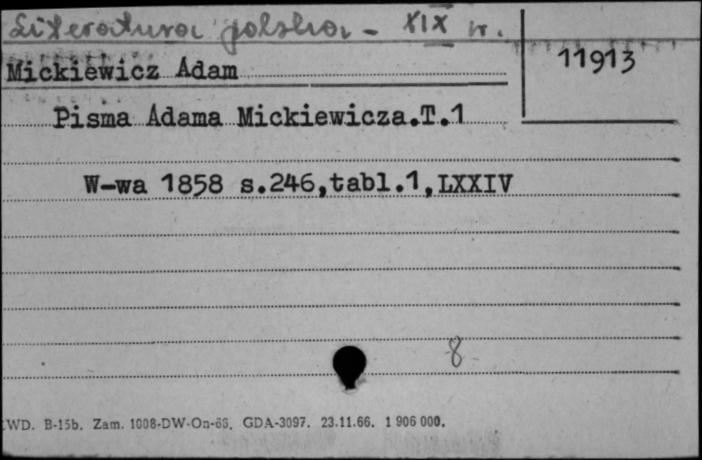 Literatura polska - XIX w.
11913
Mickiewicz Adam
Pisma Adama Mickiewicza.T.1
W-wa 1858 s.246,tabl.1,LXXIV
8
WD. B-15b. Zam. 1008-DW-On-66. GDA-3097. 23.11.66. 1 906 000.